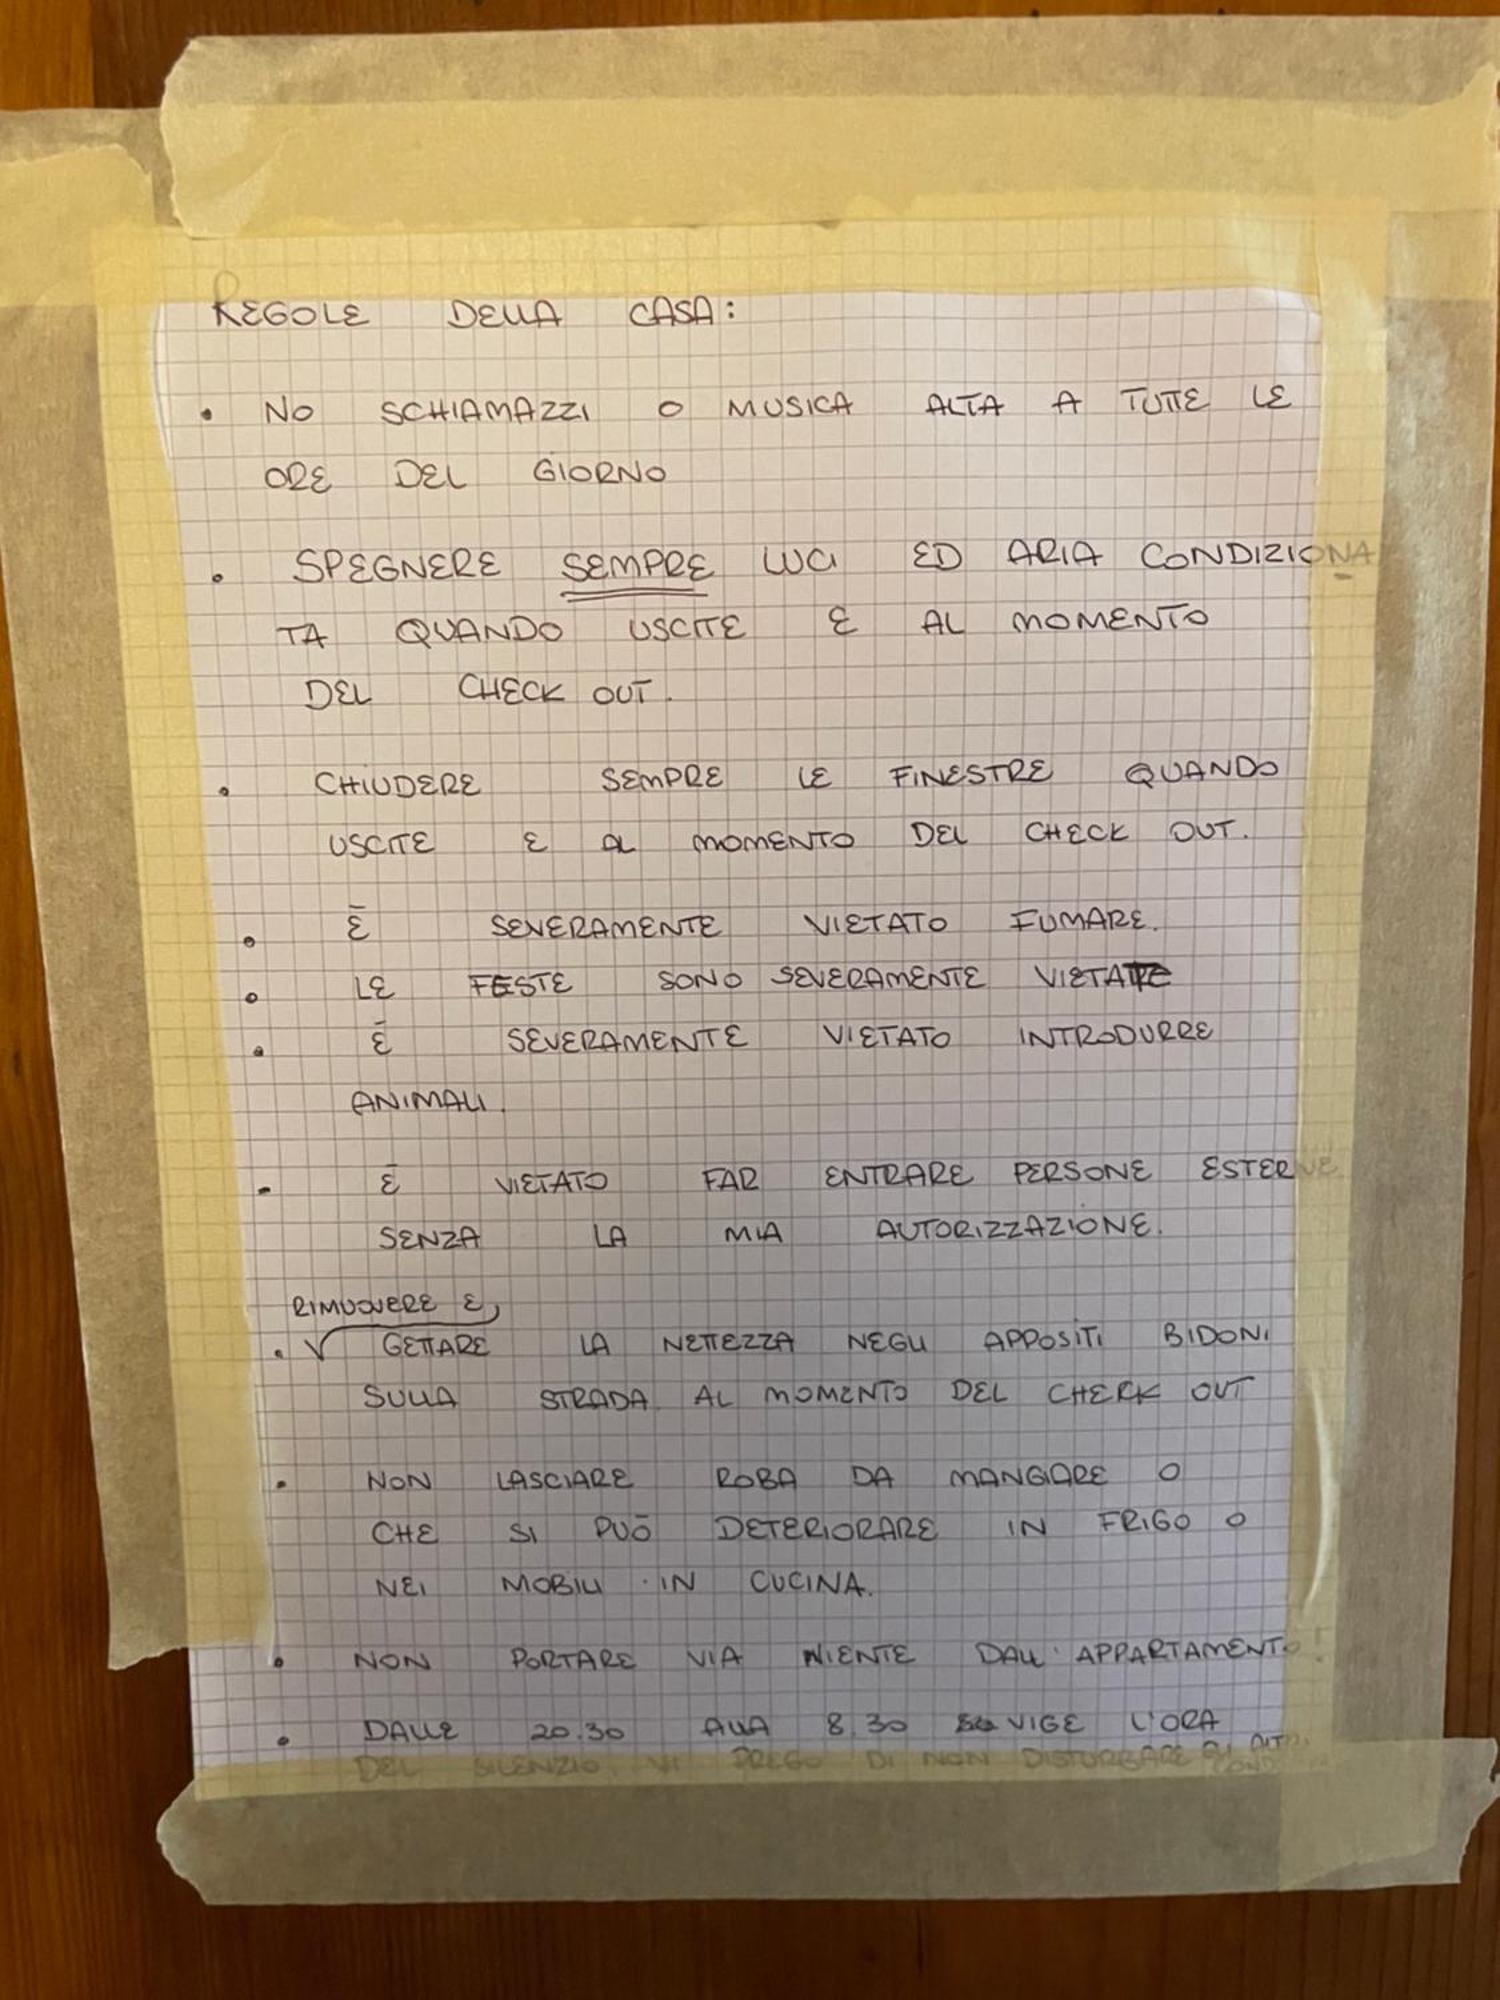 REGOLE DELLA CASA:
• NO SCHIAMAZZI O MUSICA ALTA A TUTTE LE
ORE DEL GIORNO
• SPEGNERE SEMPRE LUCI ED ARIA CONDIZIONA
TA QUANDO USCITE E AL MOMENTO
DEL CHECK OUT.
• CHIUDERE SEMPRE LE FINESTRE QUANDO
USCITE E AL MOMENTO DEL CHECK OUT.
• È SEVERAMENTE VIETATO FUMARE.
• LE FESTE SONO SEVERAMENTE VIETATE
• È SEVERAMENTE VIETATO INTRODURRE
ANIMALI.
- È VIETATO FAR ENTRARE PERSONE ESTERNE
SENZA LA MIA AUTORIZZAZIONE.
RIMUOVERE E
• GETTARE LA NETTEZZA NEGLI APPOSITI BIDONI
SULLA STRADA AL MOMENTO DEL CHECK OUT
• NON LASCIARE ROBA DA MANGIARE O
CHE SI PUÒ DETERIORARE IN FRIGO O
NEI MOBILI IN CUCINA.
• NON PORTARE VIA NIENTE DALL'APPARTAMENTO!
• DALLE 20.30 ALLA 8.30 VIGE L'ORA
DEL SILENZIO, VI PREGO DI NON DISTURBARE